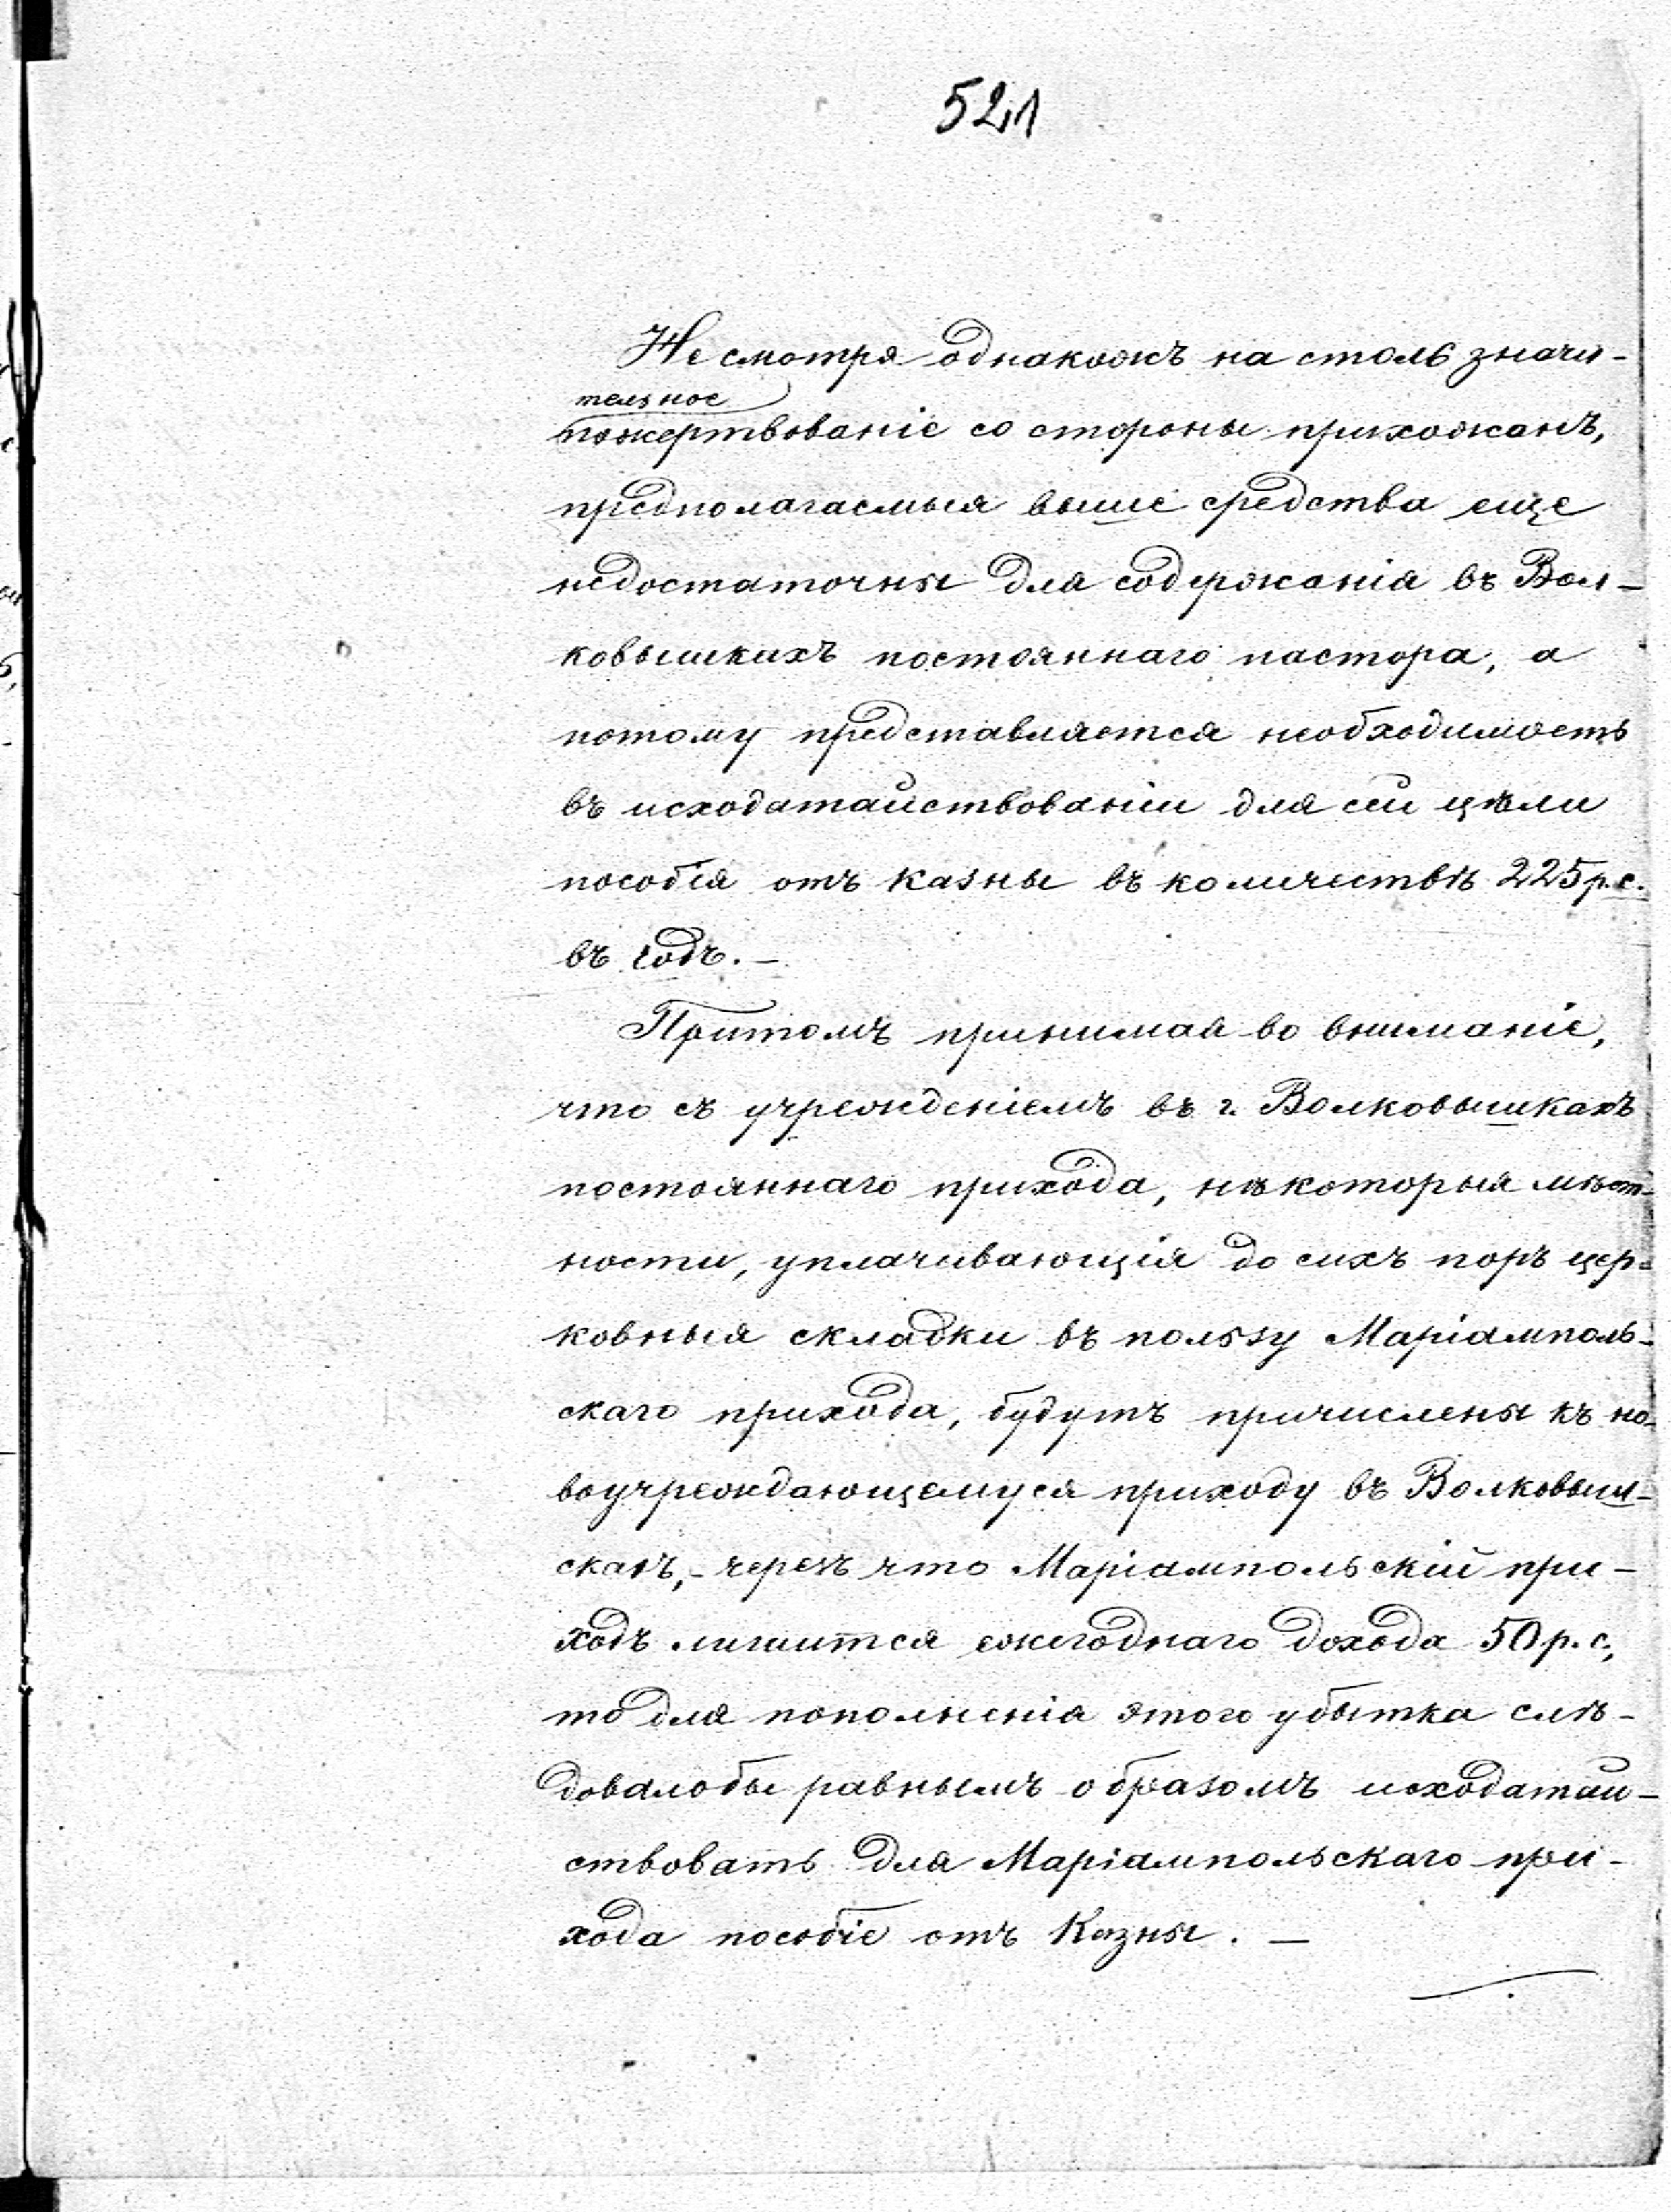 521
Не смотря однакожъ на столь значи-
тельное
пожертвованіе со стороны прихожанъ,
предполагаемыя выше средства еще
недостаточны для содержанія въ Вол-
ковышкахъ постояннаго пастора, а
потому представляется необходимость
въ исходатайствованіи для сей цѣли
пособія отъ казны въ количествѣ 225 р. с.
въ годъ. —
Притомъ принимая во вниманіе,
что съ учрежденіемъ въ г. Волковышкахъ
постояннаго прихода, нѣкоторыя мѣст-
ности, уплачивающія до сихъ поръ цер-
ковныя складки въ пользу Маріамполь-
скаго прихода, будутъ причислены къ но-
воучреждающемуся приходу въ Волковыш-
кахъ, - чрезъ что Маріампольскій при-
ходъ лишится ежегоднаго дохода 50 р. с.,
то для пополненія этого убытка слѣ-
довало бы равнымъ образомъ исходатай-
ствовать для Маріампольскаго при-
хода пособіе отъ Казны. —